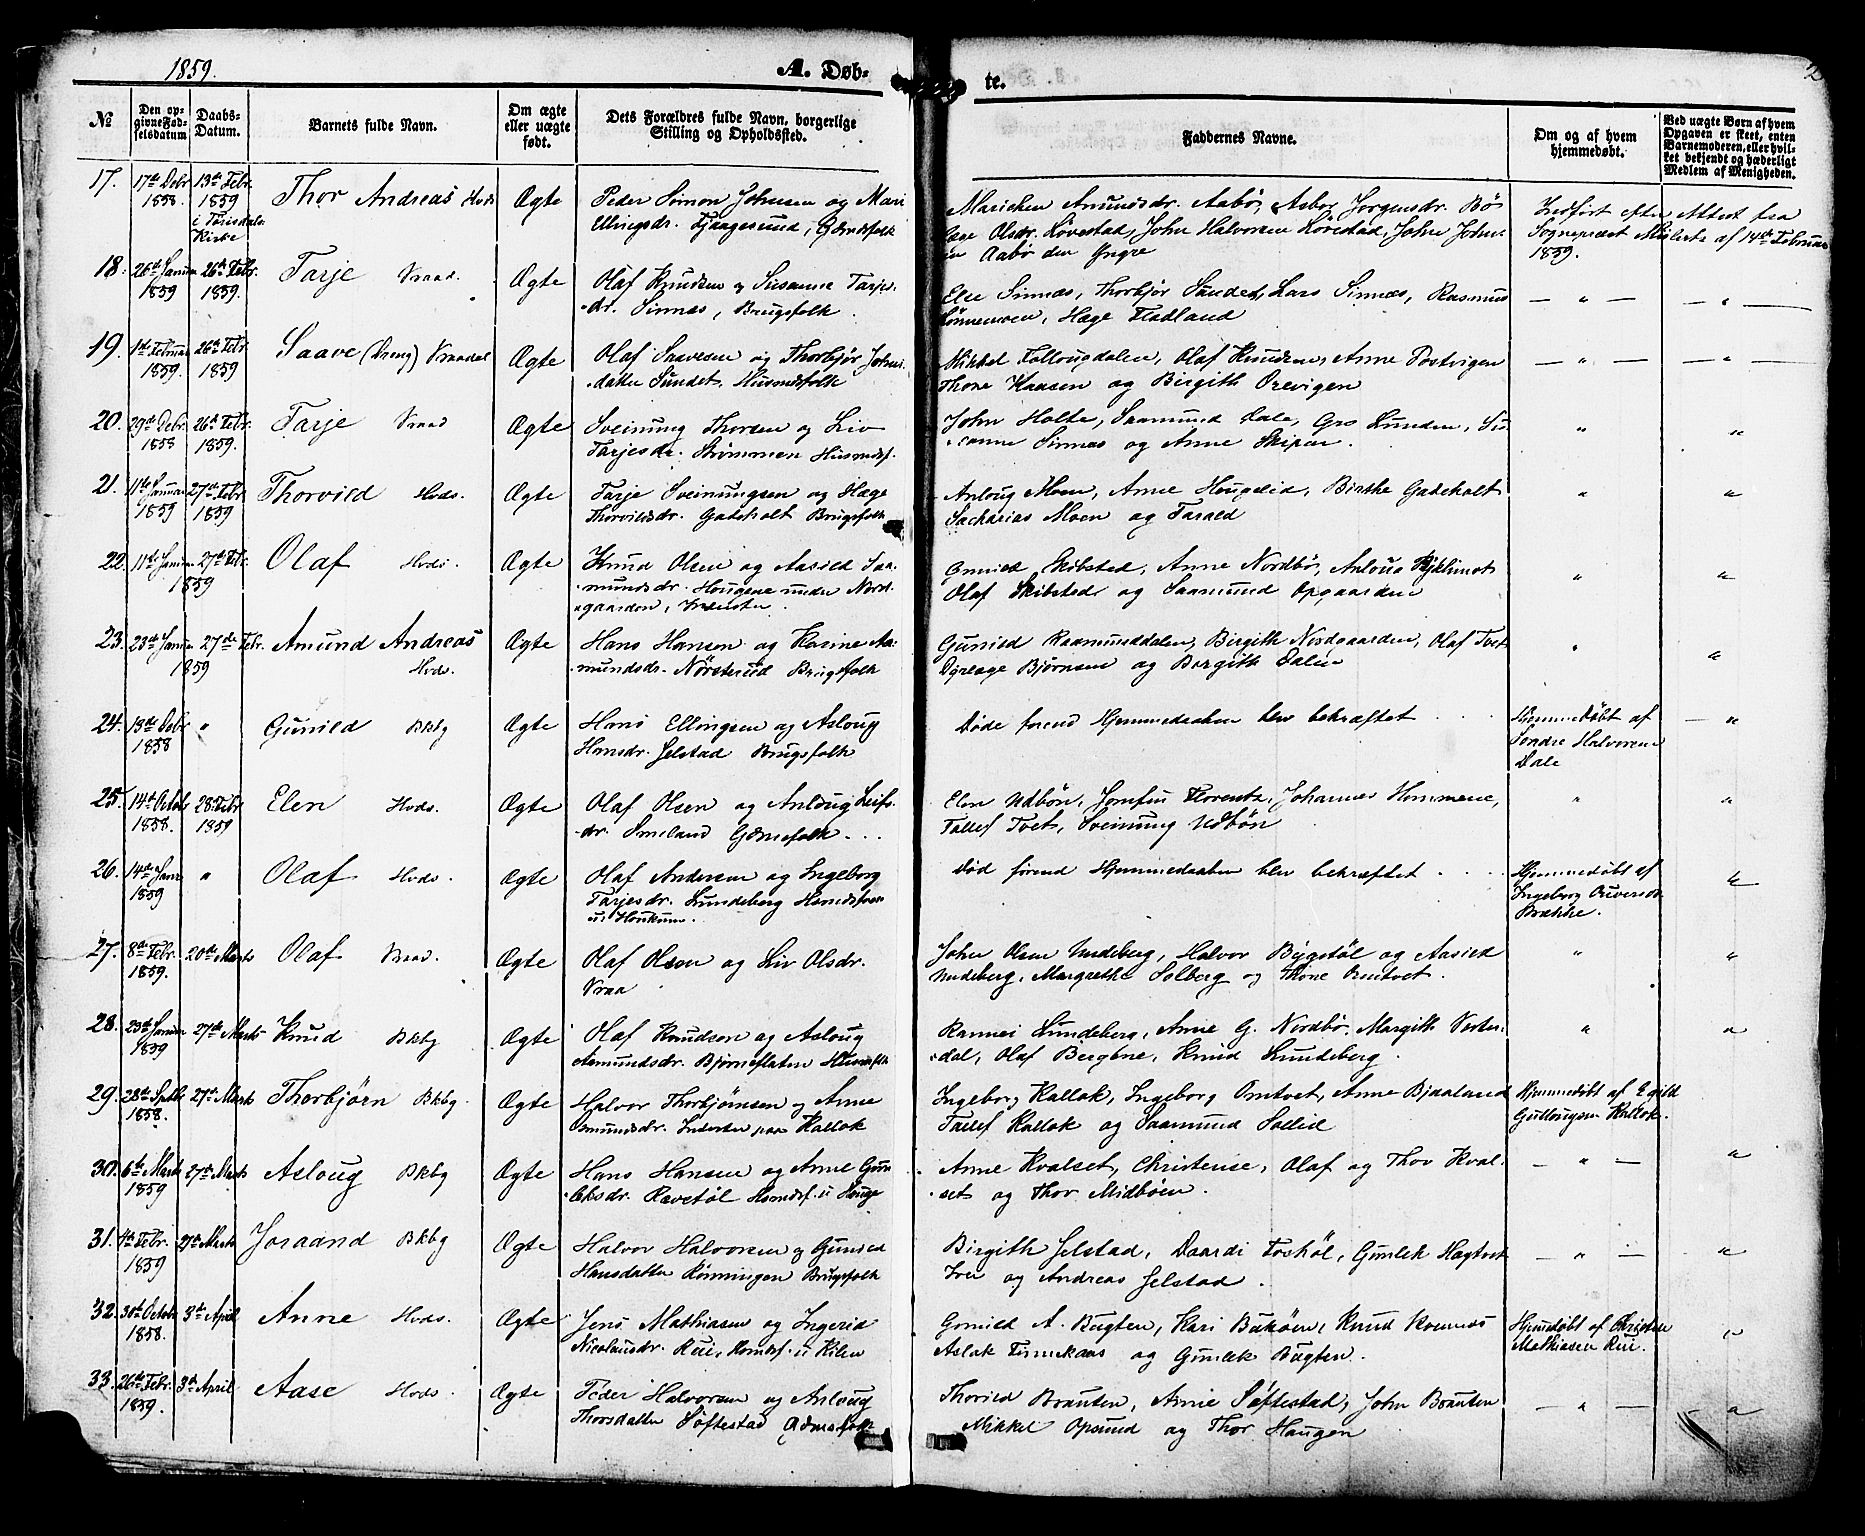 1859.
A. Døb-
te.
2
№
Den op-
givne Fød-
selsdatum
Daabs-
Datum.
Barnets fulde Navn.
Om ægte
eller uægte
født.
Dets Forældres fulde Navn, borgerlige
Stilling og Opholdssted.
Faddernes Navne.
Om og af hvem
hjemmedøbt.
Ved uægte Børn af hvem
Opgaven er skeet, enten
Barnemoderen, eller hvil-
ket bekjendt og hæderligt
Medlem af Menigheden.
17. 17de Debr 13de Febr. Thor Andreas Hvds Ægte Peder Simon Johnsen og Mari
1858. 1859 Ellingsdr. Fjaagesund, Gdmdsfolk
i
Kirke
Marichen Amundsdr. Aabø, Asbor Jørgensdr. Bø
Olsdr. Lövestad, John Halvorsen Lövestad, John John-
Aabø den Yngre
Indført efter Attest fra
Sognepræst af 14de Februar
1859.
18. 26de Januar 26de Febr. Tarje Vraad. Ægte Olaf Knudsen og Susanne Tarjes-
1859 1859. dr. Sinnes, Brugsfolk.
Else Sinnes, Thorbjør Sundet, Lars Sinnes, Rasmus
Hæge Fladland
— " — — " —
19. 1ste Februar 26de Febr Saave (Dreng) Vraadal Ægte Olaf Saavesen og Thorbjør Johns-
1859. 1859 datter Sundet. Husmdsfolk
Mikkel Olaf Knudsen, Anne Postvigen
Thone Kaasen og Birgith Orevigen
— " — — " —
20. 29de Debr. 26de Febr. Tarje Vraad Ægte Sveinung Thorsen og Liv
1858 1859. Tarjesdr. Strømmen Husmdsf.
John Holte, Saamund Dale, Gro Lunden, Su-
sanne Sinnes og Anne Skipar.
" "
21. 11te Januar 27de Febr. Thorvild Hvds. Ægte Tarje Sveinungsen og Hæge
1859 1859 Thorvildsdr. Gatekalt Brugsfolk
Asloug Moen, Anne Birthe Gateholt
Sacharias Moen og Tarald
" "
22. 11te Januar 27de Febr. Olaf Hvds. Ægte Knud Olsen og Aasild Saa-
1859 mundsdr. Haugene under Nord-
gaarden, Inderster.
Gunild Skibsted, Anne Nordbø, Asloug
Olaf Skibsted og Saamund Opgaarden
" "
23. 23de Januar 27de Febr. Amund Andreas Ægte Hans Hansen og Karine Aa-
1859 Hvds. mundsdr. Nørsterud Brugsfolk
Gunild Raamunddalen, Birgith Nordgaarden, Olaf Tvet
Dyreage Bjørnsen og Birgith Dalen
" "
24. 13de Debr " Gunild Bkbg Ægte Hans Ellingsen og Asloug
1858 Hansdr. Jelstad Brugsfolk
Døde forend Hjemmedaaben blev bekræftet
Hjemmedøbt af
Søndre Halvorsen
Dale
— "
25. 14de Octobr 28de Febr Elen Hvds. Ægte Olaf Olsen og Asloug Leifs-
1858. 1859 dr. Smeland Gdmdsfolk
Elen Udbön, Jomfru Florentz, Johannes Hommene,
Tallef Tvet, Sveinung Udbön
" "
26. 14de Janr " Olaf Hvds. Ægte Olaf Andersen og Ingeborg
1859 Tarjesdr. Lundeberg
Død forend Hjemmedaaben blev bekræftet
Hjemmedøbt af
Ingeborg
Brække.
"
27. 8de Febr. 20de Marts Olaf Vraad. Ægte Olaf Olsen og Liv Olsdr.
1859. Vraa
John Olsen Lundeberg, Halvor Bygstöl og Aasild
Lundeberg, Margrethe Solberg og Thone Omtvet.
" "
28. 23de Januar 27de Marts Knud Bkbg Ægte Olaf Knudsen og Asloug
1859 Asmundsdr. Bjørneflaten Husmdsfolk
Rannei Lundeberg, Anne G. Nordbø, Margith Vester-
dal, Olaf Bergene, Knud Lundeberg.
" "
29. 28de Septbr 27de Marts Thorbjørn Bkbg. Ægte Halvor Thorbjørnsen og Anne
1858. Inderster paa Kallak
Ingeborg Kallak, Ingeborg Omtvet, Anne Bjaaland
Tallef Kallak og Saamund Sollid
Hjemmedøbt af
Kallak.
30. 6te Marts 27de Marts Asloug Bkbg Ægte Hans Hansen og Anne Gun-
1859 leksdr. Ravstøl Husmdsf. u Hauge
Anne Kvalset, Christense, Olaf og Thov Kval-
set og Thor Midbøen.
— " — "
31. 4de Febr. 27de Marts Joraand Bkbg Ægte Halvor Halvorsen og Gunild
1859 Hansdatter Rönningen Brugsfolk
Birgith Jelstad, Daardi Gunlek Hagtvet
Iver og Andreas Jelstad.
— " — "
32. 30te Octobr 3de April Anne Hvds. Ægte Jens Mathiasen og Ingerid
1858. Nicolausdr. Rui, Husmdsf. u Kilen
Gunild A. Bugten, Kari Bakøen, Knud
Aslak Finnekaas og Gunlek Bugten.
Hjemmedøbt af Christen
Mathiasen Rui.
"
33. 26de Febr. 3de April Aase Hvds. Ægte Peder Halvorsen og Asloug
1859. Thorsdatter Søftestad Gdmdsfolk
Thorild Brauten, Anne Søftestad, John Brauten
Mikkel Opsund og Thor Haugen
— " — — "